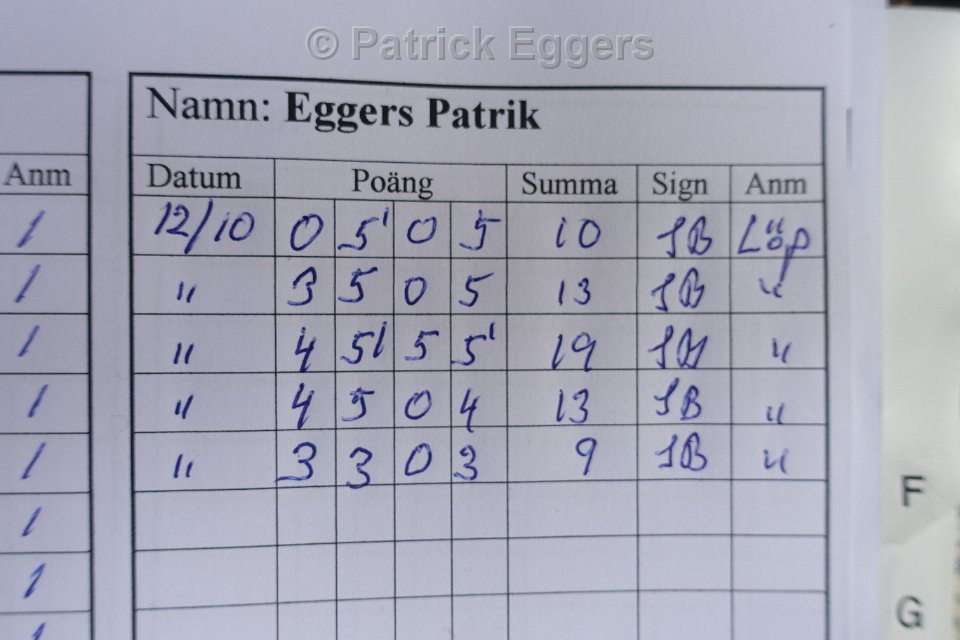 © Patrick Eggers
Namn: Eggers Patrik
Anm
Datum Poäng Summa Sign Anm
1
12/10 0 5' 0 5 10 SB Löp
1
" 3 5 0 5 13 SB "
1
" 4 5' 5 5' 19 SB "
1
" 4 5 0 4 13 SB "
1
" 3 3 0 3 9 SB "
1
1
1
F
G